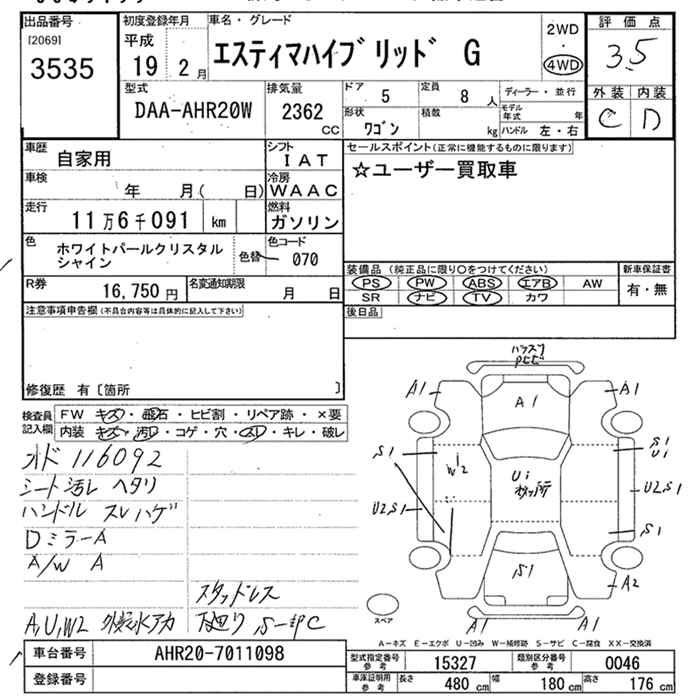 出品番号
[2069]
3535
初度登録年月
平成
19 2月
車名・グレード
エスティマハイブリッド G
2WD
・
4WD
評価点
3.5
外装 内装
C D
型式
DAA-AHR20W
排気量
2362
CC
ドア
5
定員
8 人
形状
ワゴン
積数
kg
ディーラー・並行
モデル年式
年
ハンドル 左・右
車歴
自家用
シフト
IAT
車検
年 月( 日)
冷房
WAAC
走行
11万6千091 km
燃料
ガソリン
色
ホワイトパールクリスタル
シャイン
色替
色コード
070
R券
16,750 円
名変通知期限
月 日
セールスポイント(正常に機能するものに限ります)
☆ユーザー買取車
装備品(純正品に限り○をつけてください)
PS PW ABS エアB AW
SR ナビ TV カワ
新車保証書
有・無
後日品
注意事項申告欄(不具合内容等は具体的に記入して下さい)
修復歴 有〔箇所 〕
検査員
記入欄
FW キズ・飛石・ヒビ割・リペア跡・×要
内装 キズ・汚レ・コゲ・穴・スレ・キレ・破レ
オド 116092
シート汚レ ヘタリ
ハンドル スレハゲ
DミラーA
A/W A
スタッドレス
A,U,W2 外装水アカ 下廻り S一部C
A1
A1
A1
S1
W2
S1
U1
U2,S1
U2,S1
S1
S1
A2
A1
A1
スペア
A-キズ E-エクボ U-凹み W-補修跡 S-サビ C-腐食 XX-交換済
車台番号
AHR20-7011098
登録番号
型式指定番号
参考
15327
類別区分番号
参考
0046
車庫証明用
参考
長さ
480 cm
幅
180 cm
高さ
176 cm